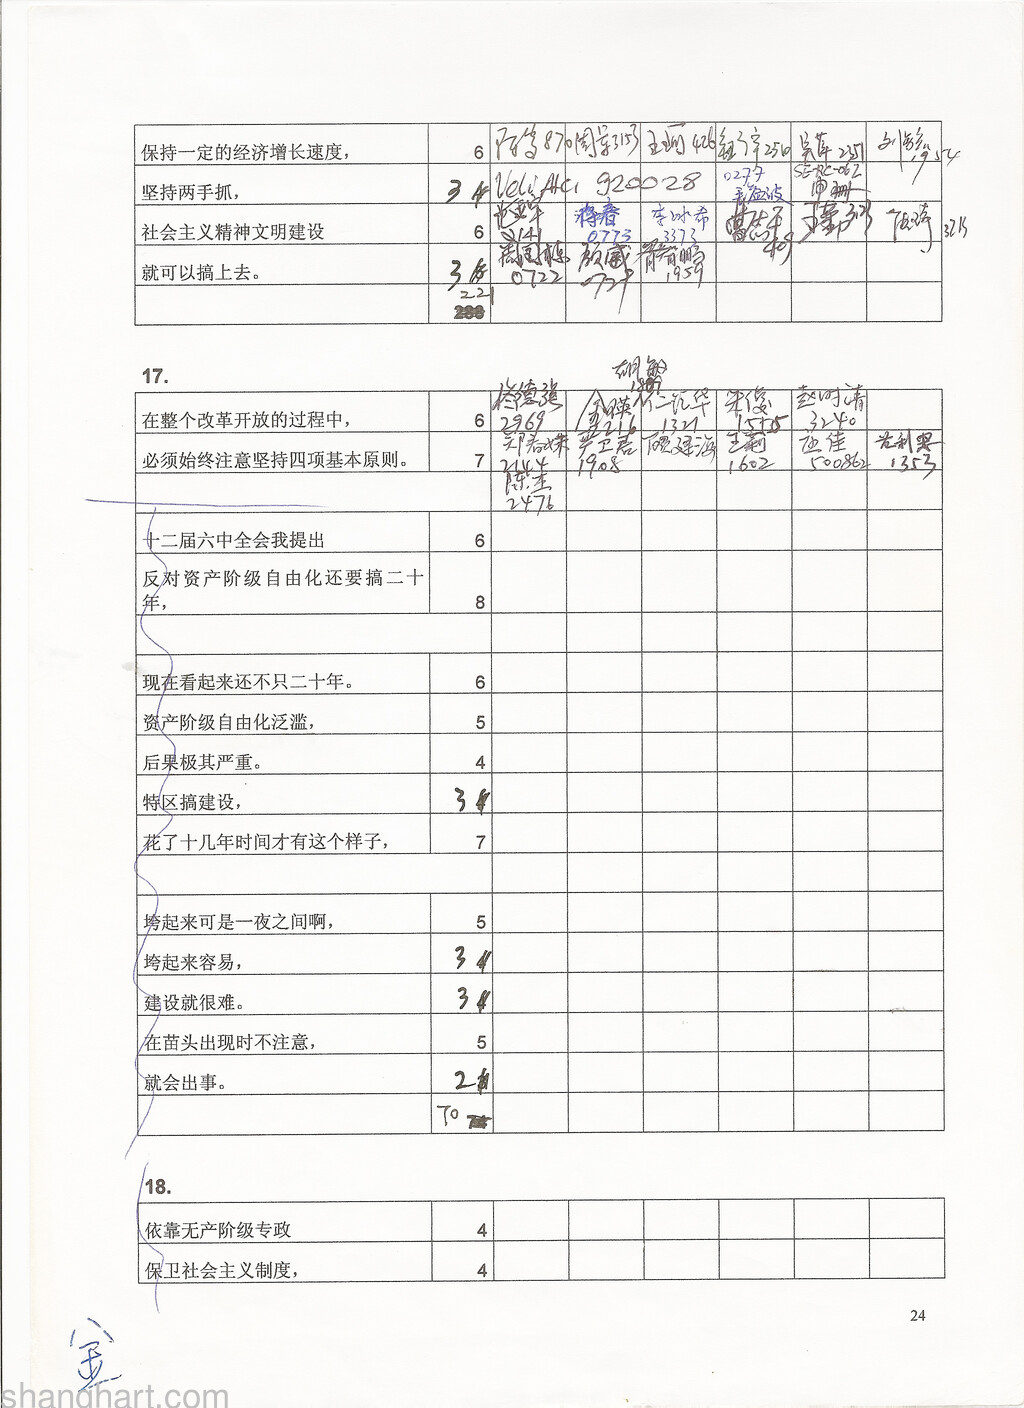 保持一定的经济增长速度， 6 870 3153 王珂 426 2510 吴萍 2351 1954
坚持两手抓， 3 Veli Ahci 920028 0277 SE-RC-062
社会主义精神文明建设 6 2141 蒋春 0773 李冰希 3373 409 3215
就可以搞上去。 3 0722 顾威 0729 1959
221
17.
胡敏
在整个改革开放的过程中， 6 徐德强 2969 1321 朱俊 15435 赵时清 3240
必须始终注意坚持四项基本原则。 7 郑春姝 2144 严卫君 1908 顾建海 王莉 1602 巫佳 500862 1353
陈杰
2476
十二届六中全会我提出 6
反对资产阶级自由化还要搞二十
年， 8
现在看起来还不只二十年。 6
资产阶级自由化泛滥， 5
后果极其严重。 4
特区搞建设， 3
花了十几年时间才有这个样子， 7
垮起来可是一夜之间啊， 5
垮起来容易， 3
建设就很难。 3
在苗头出现时不注意， 5
就会出事。 2
70
18.
依靠无产阶级专政 4
保卫社会主义制度， 4
24
shandhart.com